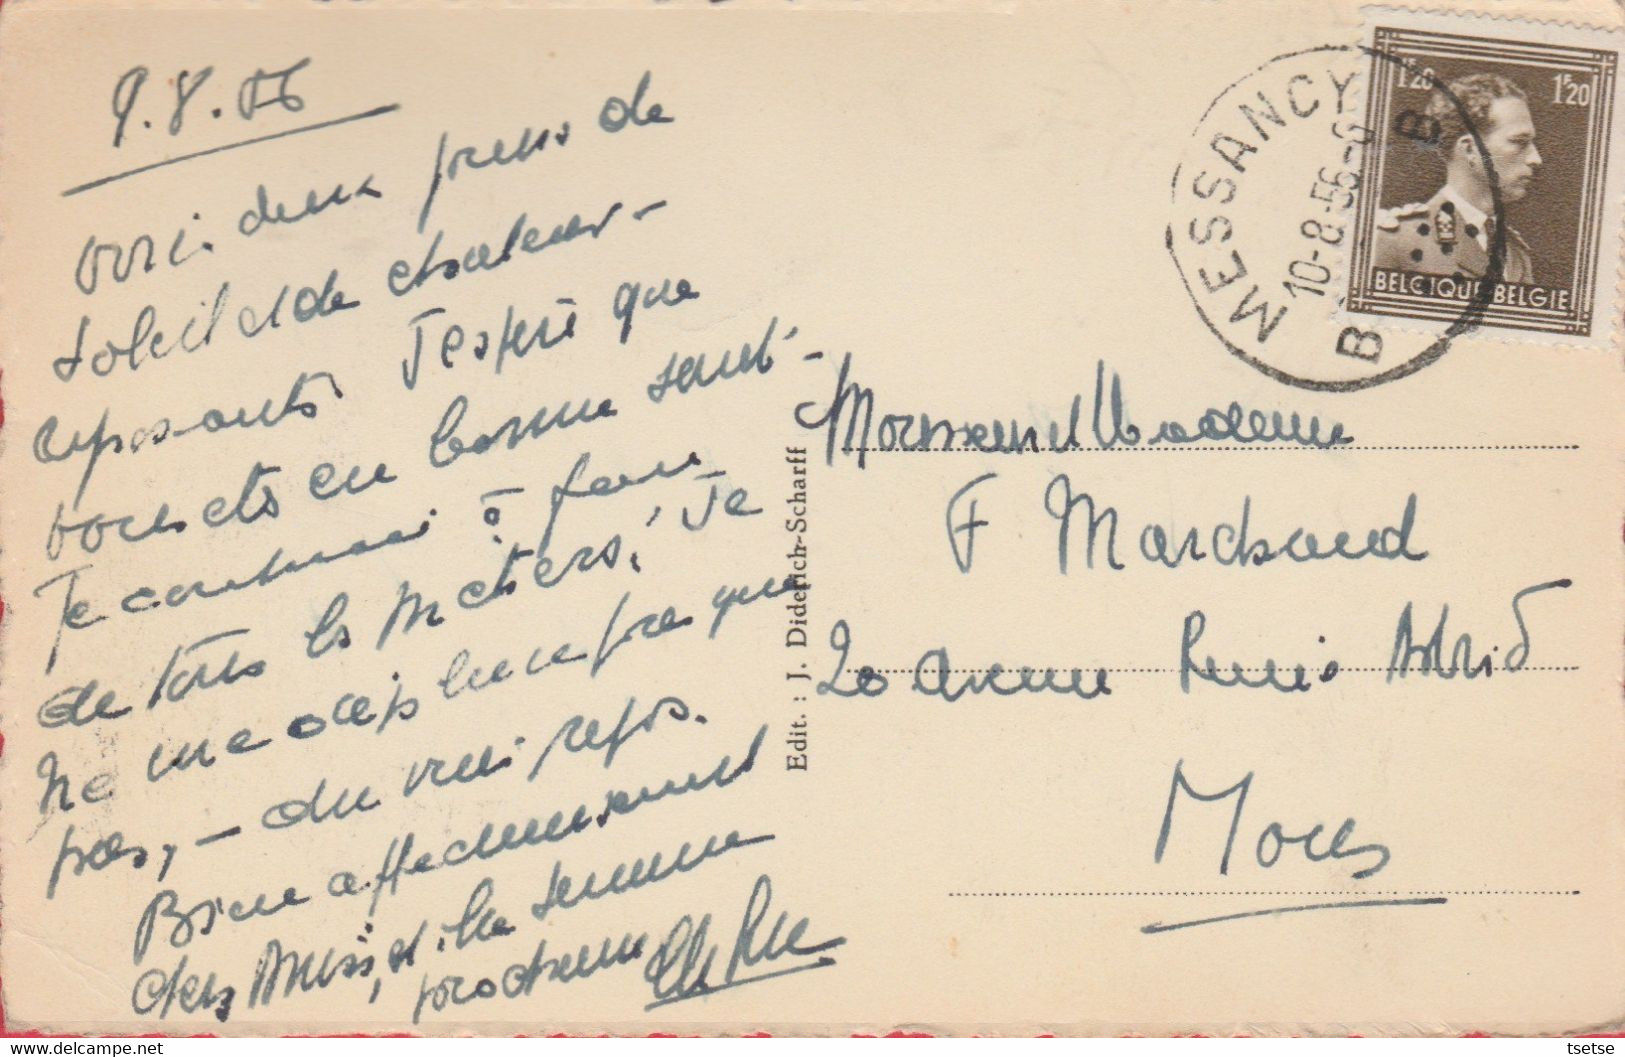 9.8.56
Voici deux jours de
soleil et de chaleur -
reposants J'espère que
vous êts en bonne santé -
Je continue à faire
de tous les métiers! Je
ne me déplace presque
pas, - du vrai repos.
Bien affectueusement
chers Amis, à la semaine
prochaine
Edit. : J. Diderich-Scharff
MESSANCY
10-8-56-6
B B
1F20 1F20
BELGIQUE BELGIE
Monsieur et Madame
F Marchand
20 Avenue Reine Astrid
Mons
tsetse